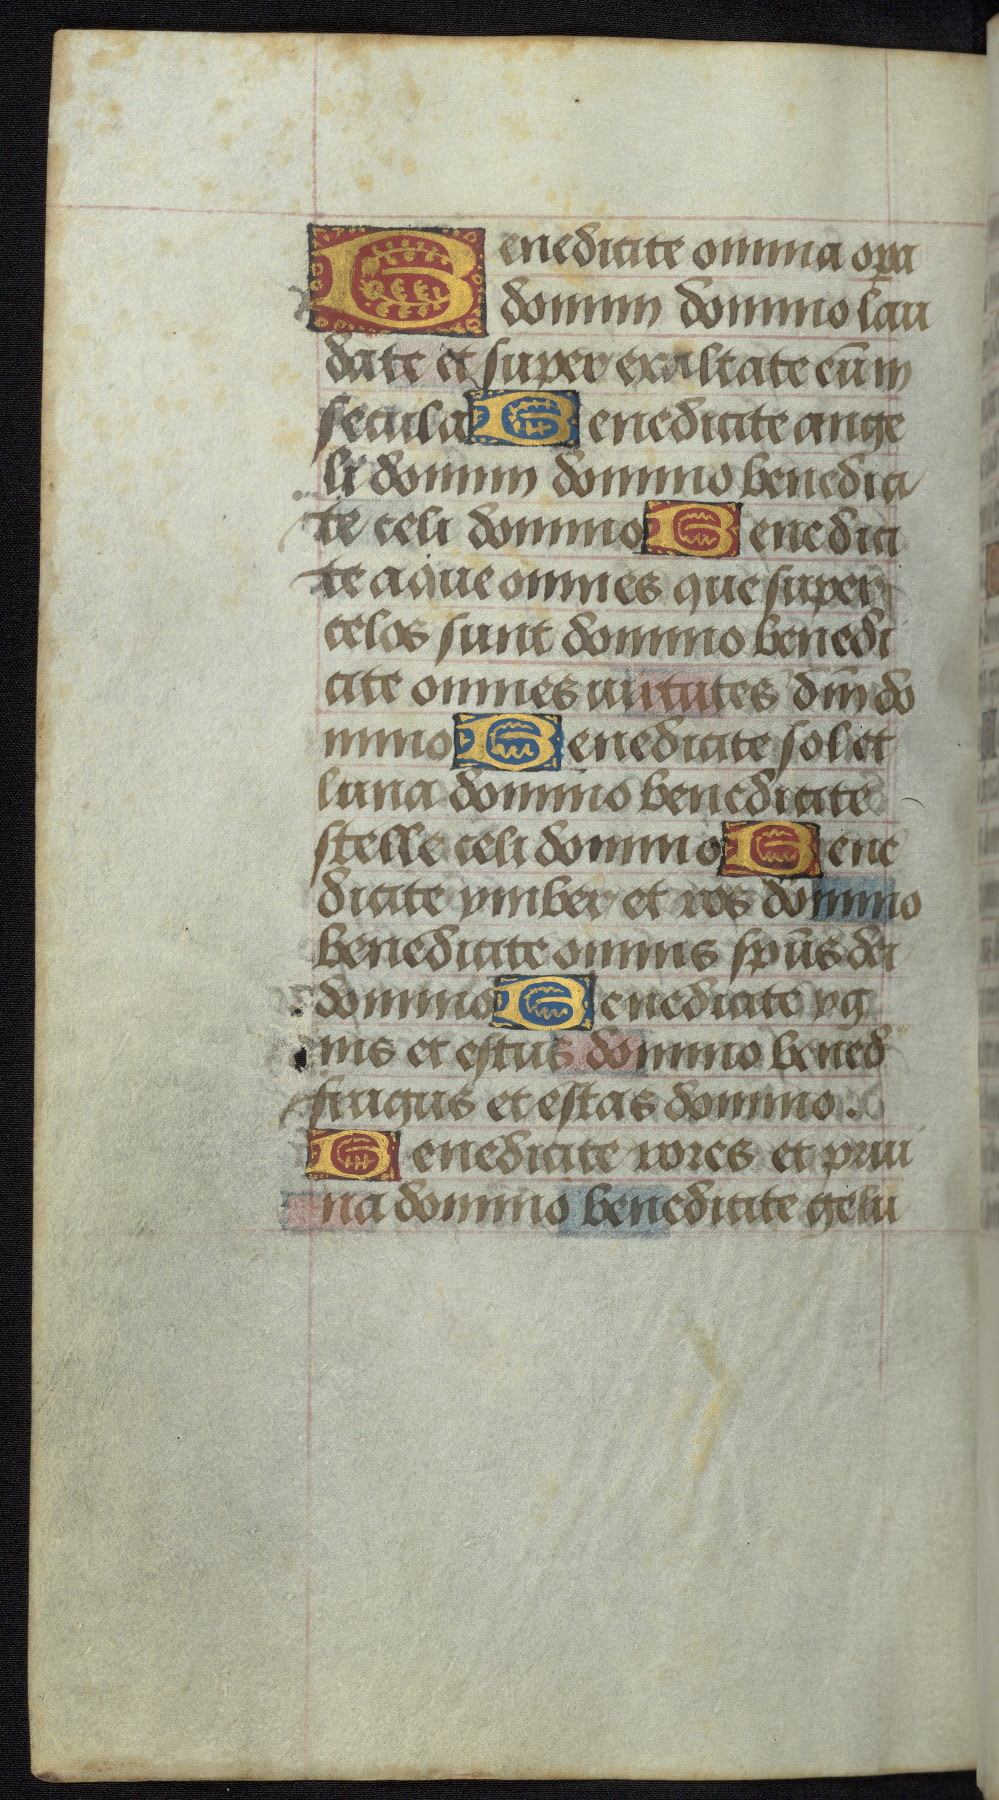 Benedicite omnia opa
domini domino lau
date et super exaltate eū in
secula Benedicite ange
li domini domino benedici
te celi domino Benedici
te aque omnes que super
celos sunt domino benedi
cite omnes uirtutes dn̄i do
mino Benedicite sol et
luna domino benedicite
stelle celi domino Bene
dicite ymber et ros domino
benedicite omnis sp̄us dei
domino Benedicite yg
nis et estus domino bened
frigus et estas domino .
Benedicite rores et prui
na domino benedicite gelu